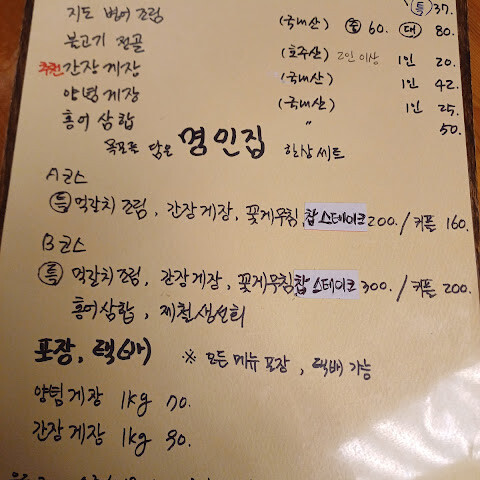 (특) 37.
지도 병어 조림 (국내산) (중) 60. (대) 80.
불고기 전골 (호주산) 2인 이상 1인 20.
추천 간장게장 (국내산) 1인 42.
양념게장 (국내산) 1인 25.
홍어삼합 〃 50.
목포를 담은 명인집 한상세트
A코스
(특) 먹갈치조림, 간장게장, 꽃게무침, 찹스테이크 200. / 커플 160.
B코스
(특) 먹갈치조림, 간장게장, 꽃게무침, 찹스테이크 300. / 커플 200.
홍어삼합, 제철생선회
포장, 택배 ※ 모든 메뉴 포장, 택배 가능
양념게장 1kg 70.
간장게장 1kg 90.